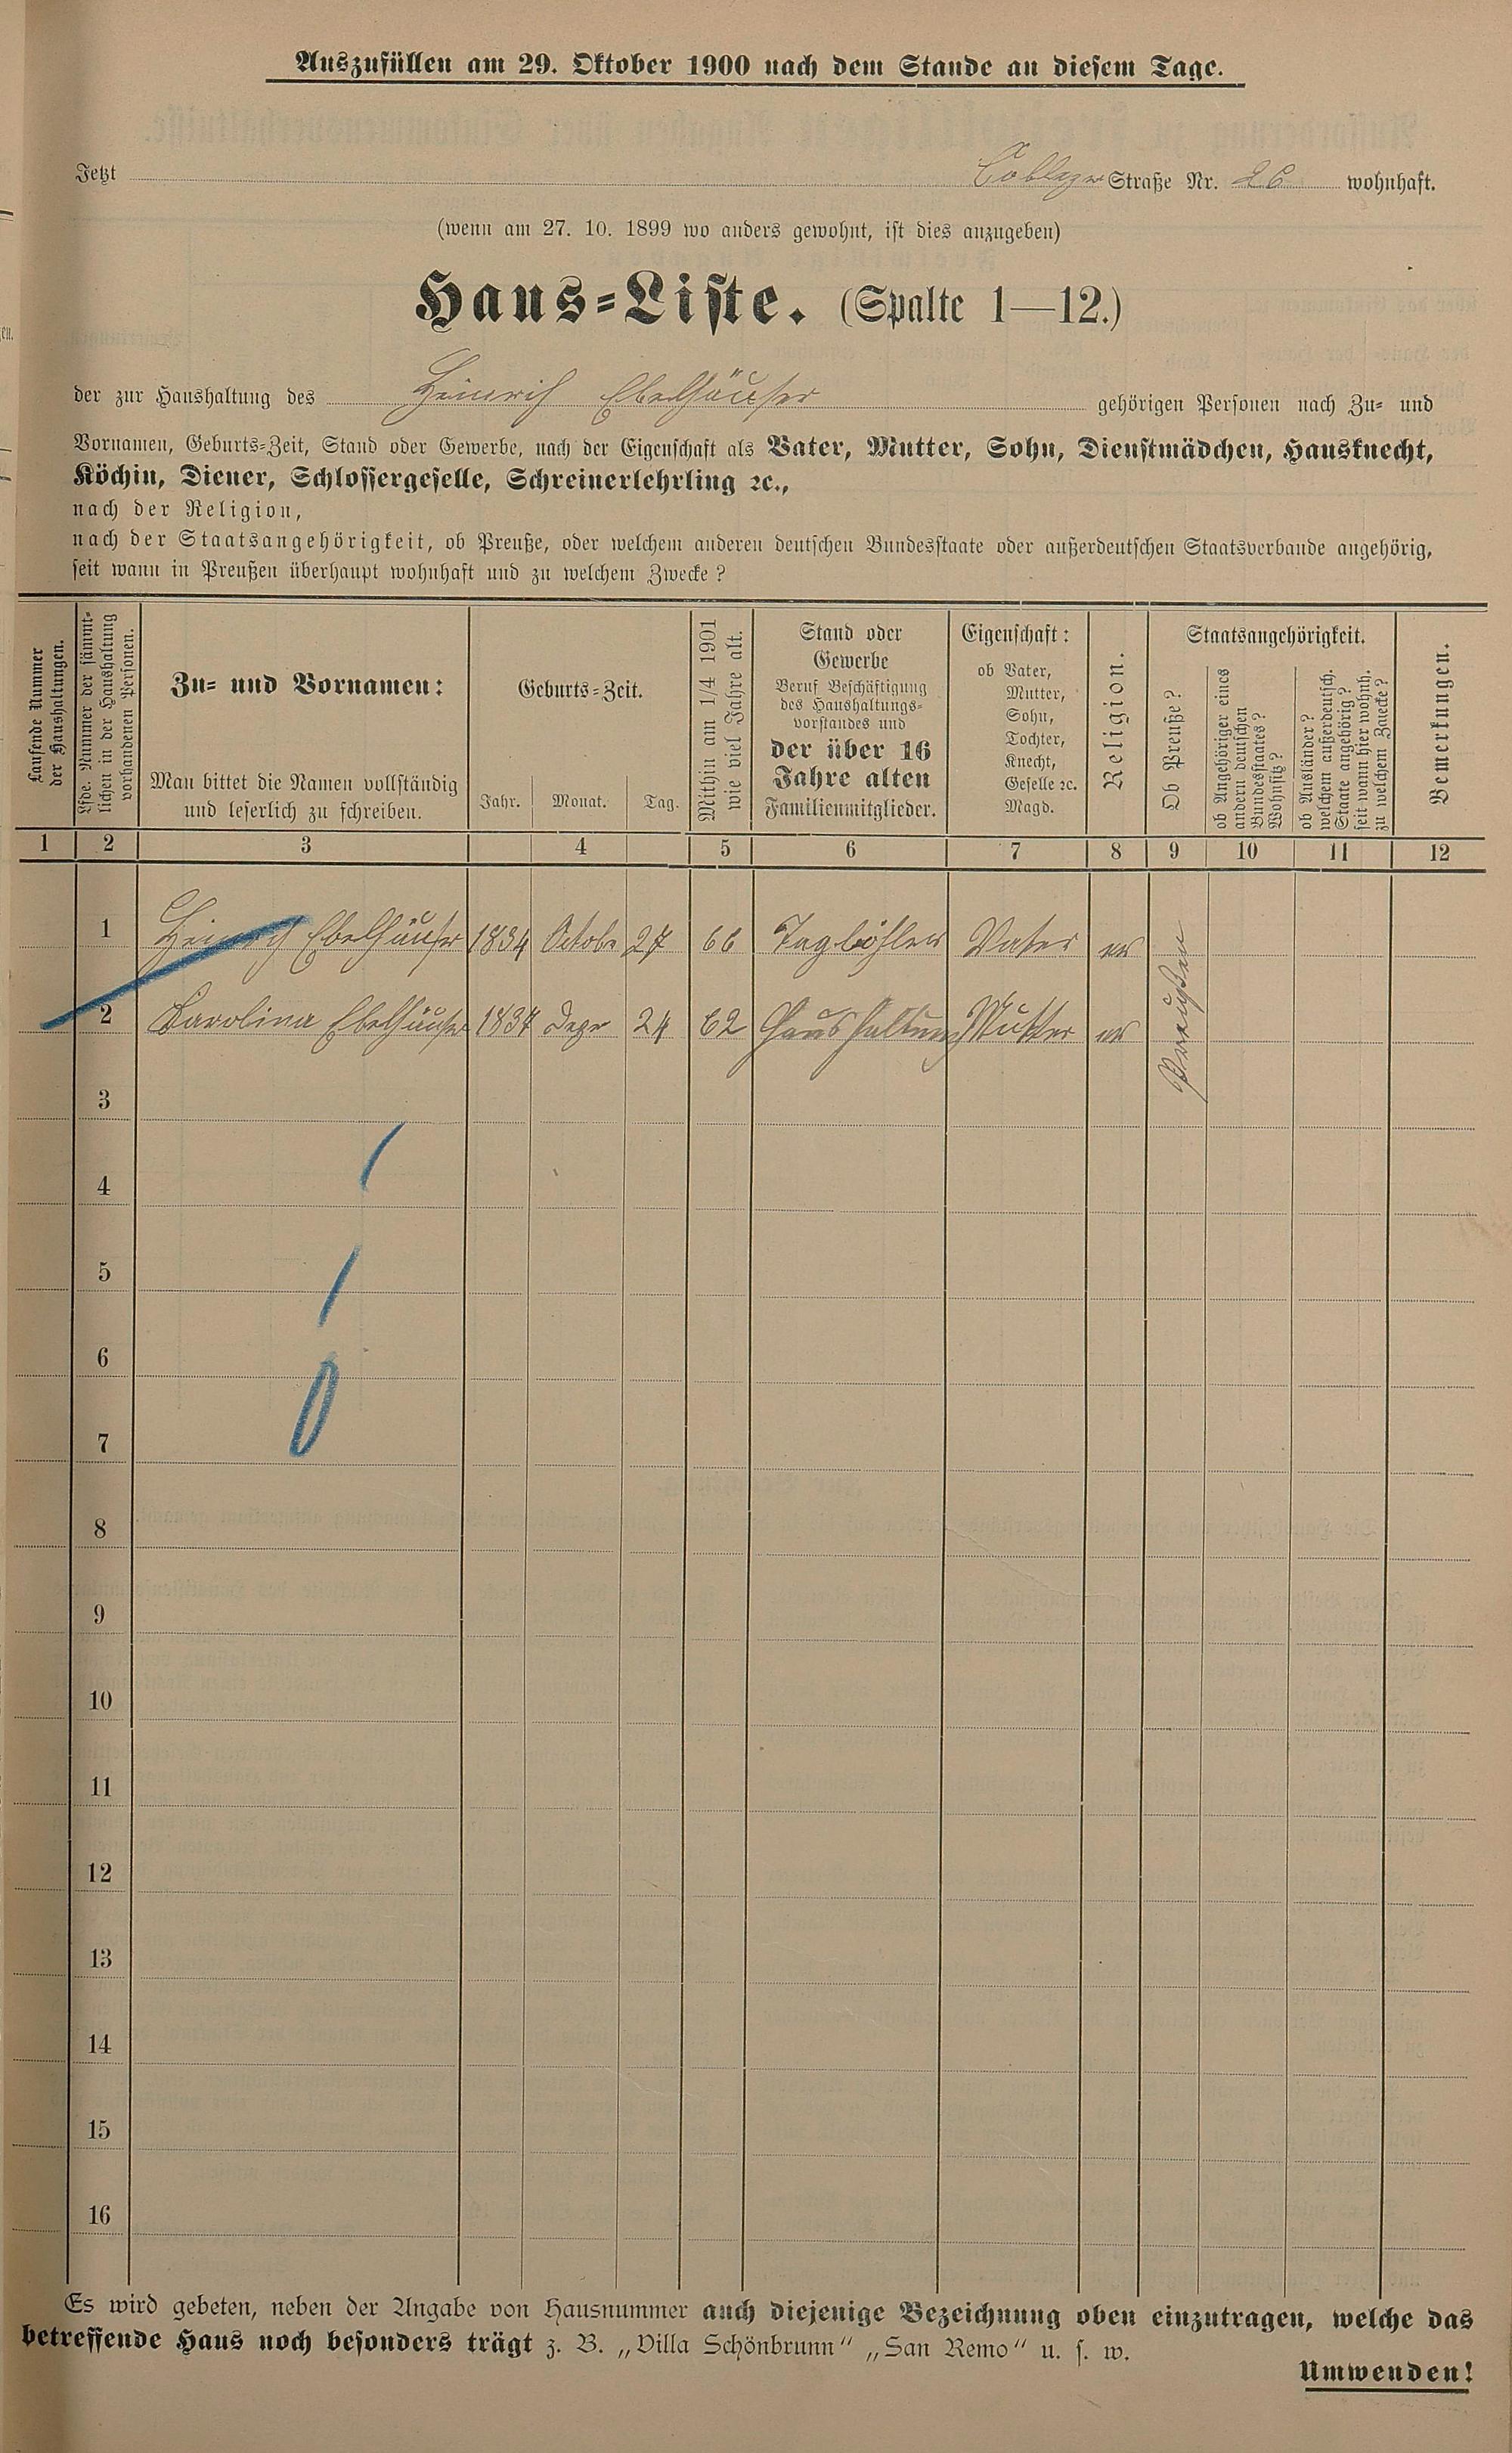 Auszufüllen am 29. Oktober 1900 nach dem Stande an diesem Tage.
Jetzt Straße Nr. 26 wohnhaft.
(wenn am 27. 10. 1899 wo anders gewohnt, ist dies anzugeben)
Haus-Liste. (Spalte 1—12.)
der zur Haushaltung des Heinrich Ebelhäuser gehörigen Personen nach Zu- und
Vornamen, Geburts-Zeit, Stand oder Gewerbe, nach der Eigenschaft als Vater, Mutter, Sohn, Dienstmädchen, Hausknecht,
Köchin, Diener, Schlossergeselle, Schreinerlehrling ꝛc.,
nach der Religion,
nach der Staatsangehörigkeit, ob Preuße, oder welchem anderen deutschen Bundesstaate oder außerdeutschen Staatsverbande angehörig,
seit wann in Preußen überhaupt wohnhaft und zu welchem Zwecke?
Laufende Nummer
der Haushaltungen.
Lfde. Nummer der sämmt-
lichen in der Haushaltung
vorhandenen Personen.
Zu- und Vornamen:
Man bittet die Namen vollständig
und leserlich zu schreiben.
Geburts-Zeit.
Jahr. Monat. Tag.
Mithin am 1/4 1901
wie viel Jahre alt.
Stand oder
Gewerbe
Beruf Beschäftigung
des Haushaltungs-
vorstandes und
der über 16
Jahre alten
Familienmitglieder.
Eigenschaft:
ob Vater,
Mutter,
Sohn,
Tochter,
Knecht,
Geselle ꝛc.
Magd.
Religion.
Staatsangehörigkeit.
Ob Preuße?
ob Angehöriger eines
andern deutschen
Bundesstaates?
Wohnsitz?
ob Ausländer?
welchem außerdeutsch.
Staate angehörig?
seit wann hier wohnh.
zu welchem Zwecke?
Bemerkungen.
1 2 3 4 5 6 7 8 9 10 11 12
1 Heinrich Ebelhäuser 1834 Octobr 27 66 Taglöhner Vater ev
2 Carolina Ebelhäuser 1834 Dezr 24 62 Haushaltung Mutter ev
Preußen
3
4
5
6
7
8
9
10
11
12
13
14
15
16
Es wird gebeten, neben der Angabe von Hausnummer auch diejenige Bezeichnung oben einzutragen, welche das
betreffende Haus noch besonders trägt z. B. „Villa Schönbrunn" „San Remo" u. s. w.
Umwenden!